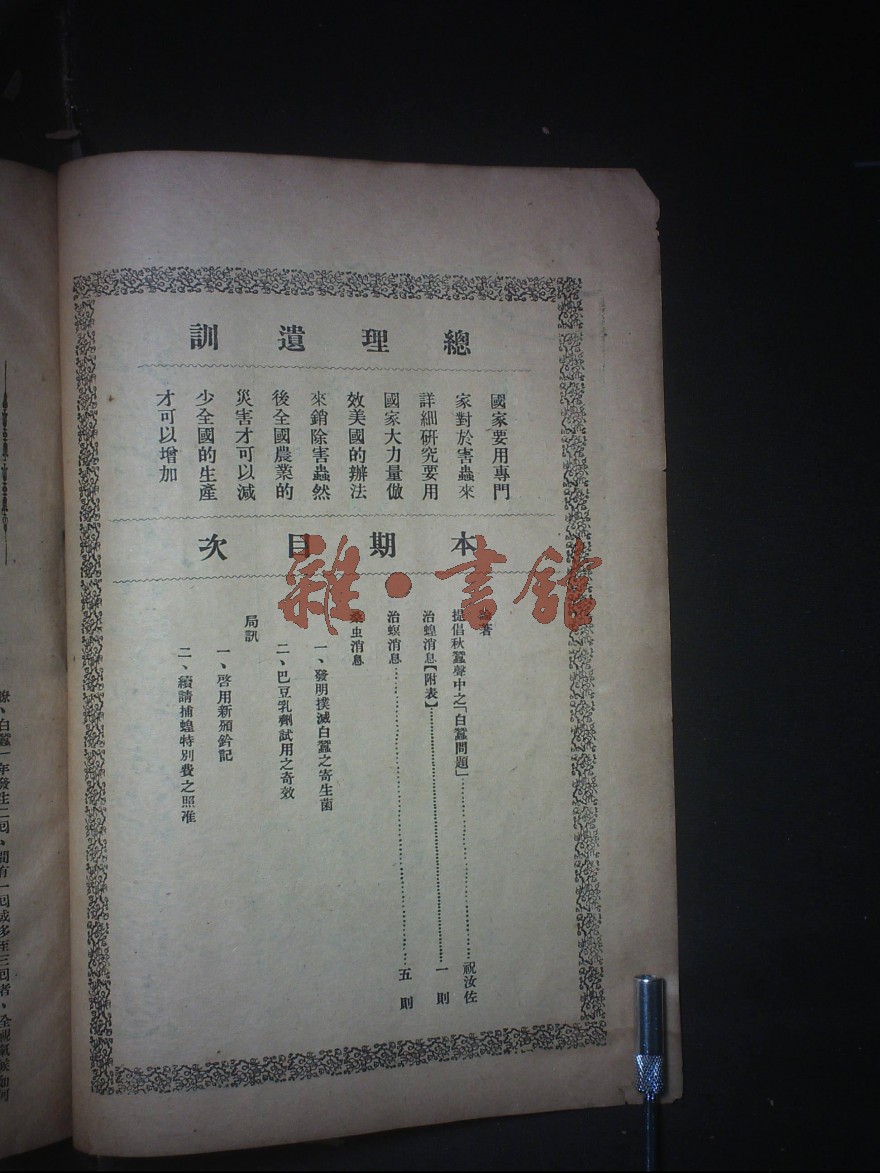 總理遺訓
國家要用專門
家對於害蟲來
詳細研究要用
國家大力量倣
效美國的辦法
來銷除害蟲然
後全國農業的
災害才可以減
少全國的生產
才可以增加
本期目次
著
提倡秋蠶聲中之「白蠶問題」……祝汝佐
治蝗消息【附表】……一則
治螟消息……五則
虫消息
一、發明撲滅白蠶之寄生菌
二、巴豆乳劑試用之奇效
局訊
一、啓用新頒鈐記
二、續請捕蝗特別費之照准
雜·書館
、白蠶一年發生二回、間有一回或多至三回者、全視氣候如何